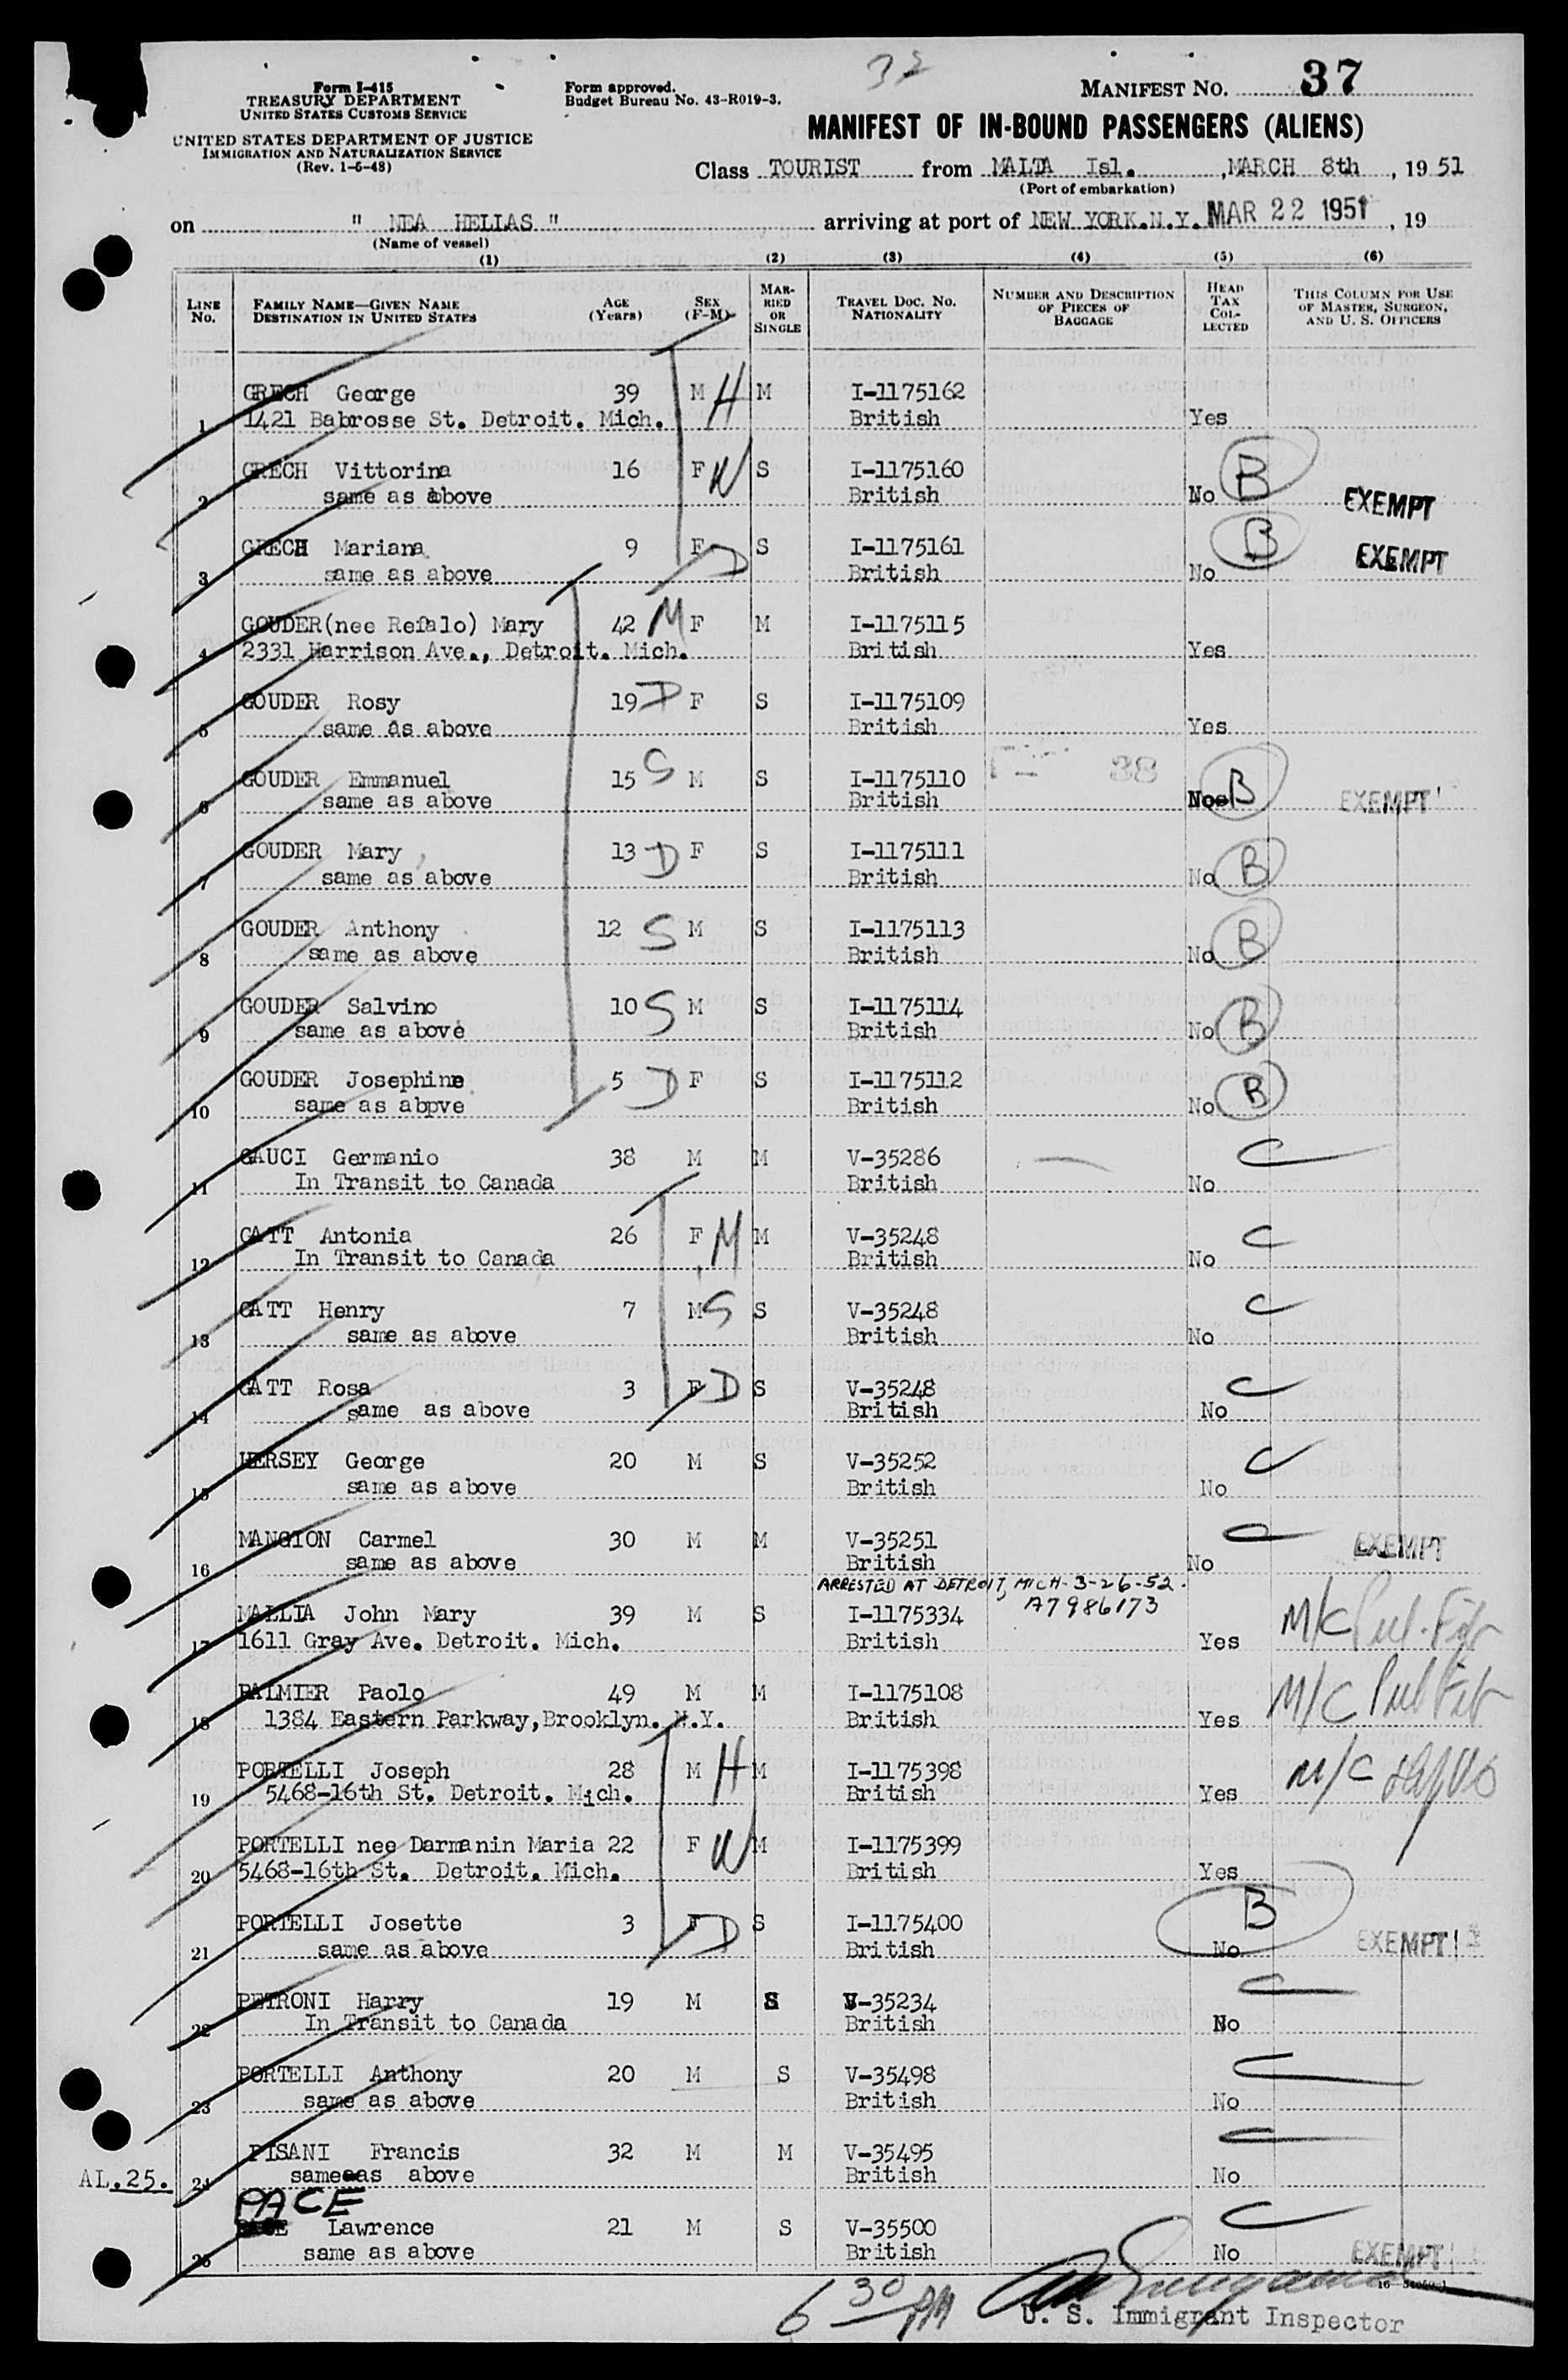 32
Form I-415
TREASURY DEPARTMENT
UNITED STATES CUSTOMS SERVICE
UNITED STATES DEPARTMENT OF JUSTICE
IMMIGRATION AND NATURALIZATION SERVICE
(Rev. 1-5-48)
Form approved.
Budget Bureau No. 43-R019-3.
MANIFEST NO. 37
MANIFEST OF IN-BOUND PASSENGERS (ALIENS)
Class TOURIST from MALTA Isl. , MARCH 8th , 19 51
(Port of embarkation)
on " NEA HELLAS " arriving at port of NEW YORK.N.Y. MAR 22 1951 , 19
(Name of vessel)
(1) (2) (3) (4) (5) (6)
LINE No. FAMILY NAME—GIVEN NAME DESTINATION IN UNITED STATES AGE (Years) SEX (F-M) MARRIED OR SINGLE TRAVEL DOC. NO. NATIONALITY NUMBER AND DESCRIPTION OF PIECES OF BAGGAGE HEAD TAX COLLECTED THIS COLUMN FOR USE OF MASTER, SURGEON, AND U. S. OFFICERS
GRECH George 39 M H M I-1175162
1 1421 Babrosse St. Detroit. Mich. British Yes
GRECH Vittorina 16 F W S I-1175160 B
2 same as above British No EXEMPT
GRECH Mariana 9 F D S I-1175161 B EXEMPT
3 same as above British No
GOUDER(nee Refalo) Mary 42 M F M I-1175115
4 2331 Harrison Ave., Detroit. Mich. British Yes
GOUDER Rosy 19 D F S I-1175109
5 same as above British Yes
GOUDER Emmanuel 15 S M S I-1175110 38
6 same as above British No B EXEMPT
GOUDER Mary 13 D F S I-1175111
7 same as above British No B
GOUDER Anthony 12 S M S I-1175113
8 same as above British No B
GOUDER Salvino 10 S M S I-1175114
9 same as above British No B
GOUDER Josephine 5 D F S I-1175112
10 same as abpve British No B
GAUCI Germanio 38 M M V-35286 C
11 In Transit to Canada British No
GATT Antonia 26 F M M V-35248 C
12 In Transit to Canada British No
GATT Henry 7 M S S V-35248 C
13 same as above British No
GATT Rosa 3 F D S V-35248 C
14 same as above British No
HERSEY George 20 M S V-35252 C
15 same as above British No
MANGION Carmel 30 M M V-35251 C EXEMPT
16 same as above British No
ARRESTED AT DETROIT, MICH- 3-26-52.
A7986173
MALLIA John Mary 39 M S I-1175334 M/C
17 1611 Gray Ave. Detroit. Mich. British Yes
PALMIER Paolo 49 M M I-1175108 M/C
18 1384 Eastern Parkway,Brooklyn. N.Y. British Yes
PORTELLI Joseph 28 M H M I-1175398 M/C
19 5468-16th St. Detroit. Mich. British Yes
PORTELLI nee Darmanin Maria 22 F W M I-1175399
20 5468-16th St. Detroit. Mich. British Yes
PORTELLI Josette 3 F D S I-1175400 B
21 same as above British No EXEMPT
PETRONI Harry 19 M S V-35234 C
22 In Transit to Canada British No
PORTELLI Anthony 20 M S V-35498 C
23 same as above British No
PISANI Francis 32 M M V-35495 C
AL.25. 24 sameeas above British No
PACE
Lawrence 21 M S V-35500 C
25 same as above British No EXEMPT
6 30 PM
U. S. Immigrant Inspector